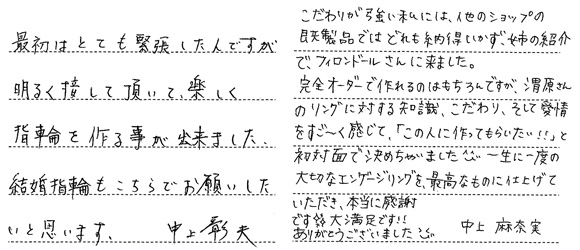 最初はとても緊張したんですが
明るく接して頂いて、楽しく
指輪を作る事が出来ました。
結婚指輪もこちらでお願いした
いと思います。 中上 彰夫
こだわりが強い私には、他のショップの
既製品ではどれも納得いかず、姉の紹介
で、フィロンドールさんに来ました。
完全オーダーで作れるのはもちろんですが、渭原さん
のリングに対する知識、こだわり、そして愛情
をすご〜く感じて、「この人に作ってもらいたい!!」と
初対面で決めちゃいました 一生に一度の
大切なエンゲージリングを、最高なものに仕上げて
いただき、本当に感謝
です 大満足です!!
ありがとうございました 中上 麻奈実